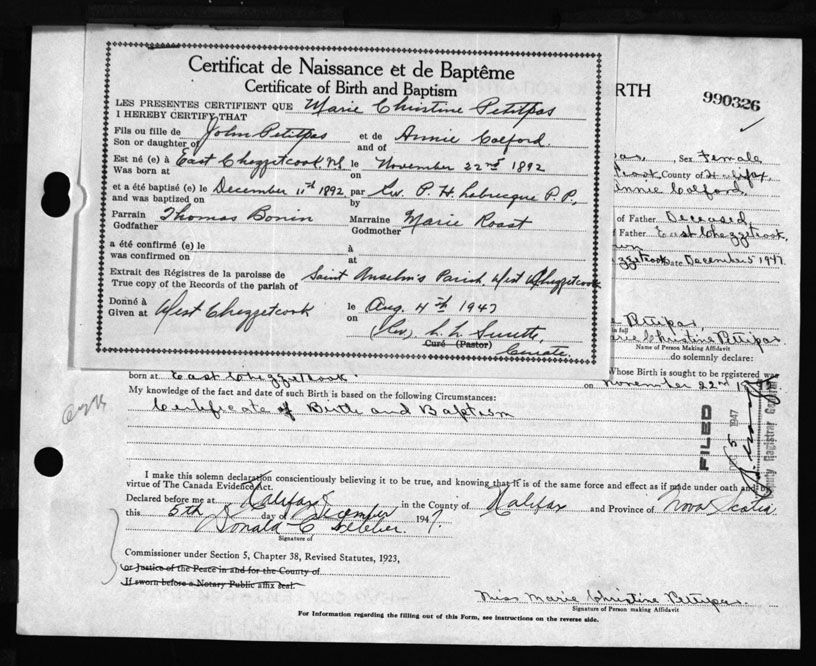 Certificat de Naissance et de Baptême
Certificate of Birth and Baptism
LES PRESENTES CERTIFIENT QUE Marie Christine Petitpas
I HEREBY CERTIFY THAT
Fils ou fille de John Petitpas et de Annie Colford.
Son or daughter of and of
Est né (e) à East Chezzetcook, N.S. le November 22nd 1892
Was born at on
et a été baptisé (e) le December 11th 1892 par Rev. P. H. Labrecque P. P.,
and was baptized on by
Parrain Thomas Bonin Marraine Marie Roast
Godfather Godmother
a été confirmé (e) le à
was confirmed on at
Extrait des Régistres de la paroisse de Saint Anselm's Parish West Chezzetcook
True copy of the Records of the parish of
Donné à West Chezzetcook le Aug. 4th 1947
Given at on
(Rev) L. L.
Curé (Pastor)
Curate.
RTH
990326
Sex Female
County of Halifax,
nnie Colford,
of Father Deceased,
Father East Chezzetcook,
Date December 5 1947
Petipas,
in full
arie Christine Petipas
Name of Person Making Affidavit
do solemnly declare:
Whose Birth is sought to be registered was
born at East Chezzetcook. on November 22nd
My knowledge of the fact and date of such Birth is based on the following Circumstances:
Certificate of Birth and Baptism
FILED
5 1947
Deputy Registrar General
I make this solemn declaration conscientiously believing it to be true, and knowing that it is of the same force and effect as if made under oath and by
virtue of The Canada Evidence Act.
Declared before me at Halifax in the County of Halifax and Province of Nova Scotia
this 5th day of December 1947.
Donald C.
Signature of
Commissioner under Section 5, Chapter 38, Revised Statutes, 1923,
or Justice of the Peace in and for the County of
If sworn before a Notary Public affix seal.
Miss Marie Christine Petipas.
Signature of Person making Affidavit
For Information regarding the filling out of this Form, see instructions on the reverse side.